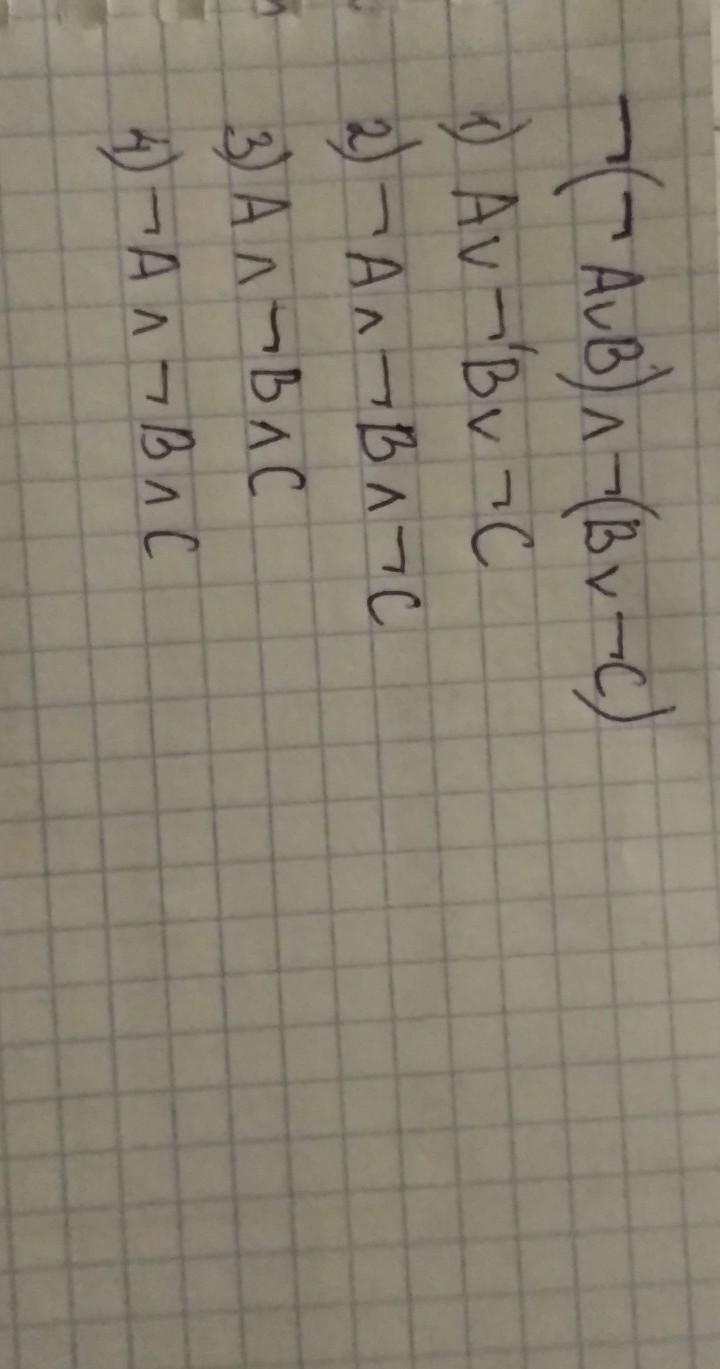 ¬(¬A∨B)∧¬(B∨¬C)
1) A∨¬B∨¬C
2) ¬A∧¬B∧¬C
3) A∧¬B∧C
4) ¬A∧¬B∧C